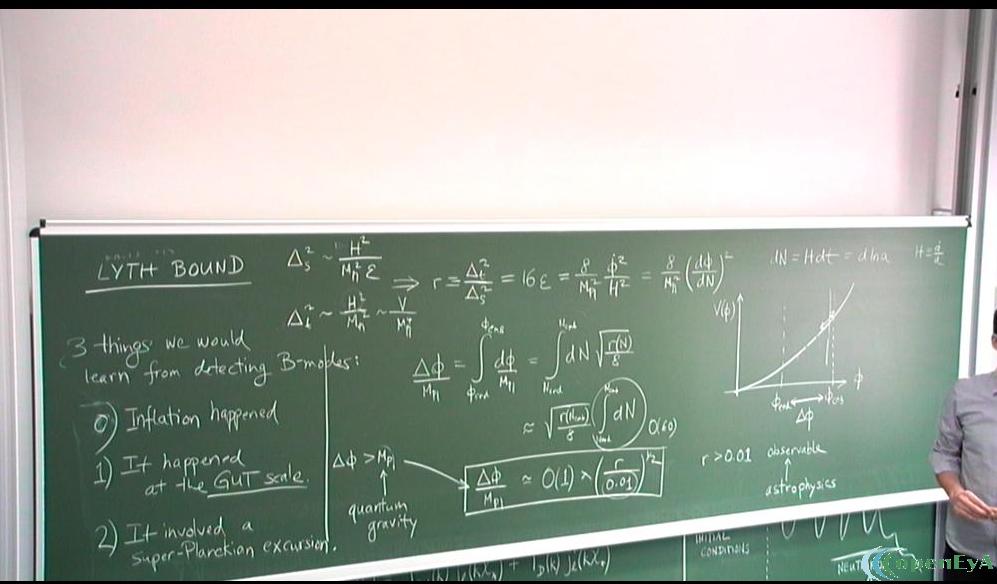 LYTH BOUND
Δ_s^2 ~ H^2 / (M_Pl^2 ε)
Δ_t^2 ~ H^2 / M_Pl^2 ~ V / M_Pl^4
⇒ r ≡ Δ_t^2 / Δ_s^2 = 16ε = (8 / M_Pl^2) (φ̇^2 / H^2) = (8 / M_Pl^2) (dφ/dN)^2
dN = Hdt = dlna
H = ȧ/a
3 things we would
learn from detecting B-modes:
0) Inflation happened
1) It happened
at the GUT scale.
2) It involved a
super-Planckian excursion.
Δφ / M_Pl = ∫ dφ / M_Pl = ∫ dN √(r(N)/8)
≈ √(r(N_cmb)/8) ∫ dN O(60)
Δφ > M_Pl
quantum
gravity
Δφ / M_Pl ≈ O(1) × (r / 0.01)^1/2
V(φ)
φ
φ_end φ_cmb
Δφ
r > 0.01 observable
astrophysics
INITIAL
CONDITIONS
openEyA